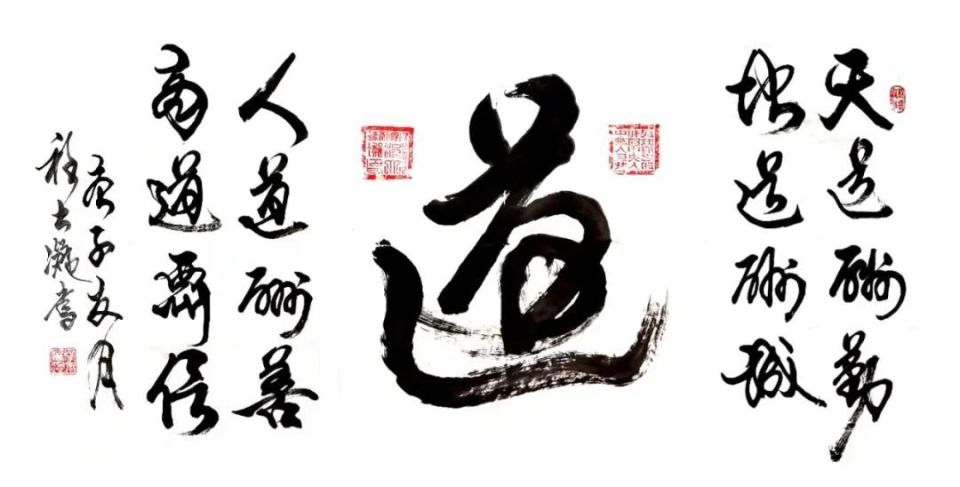 天道酬勤
地道酬誠
道
人道酬善
商道酬信
庚子 月
書